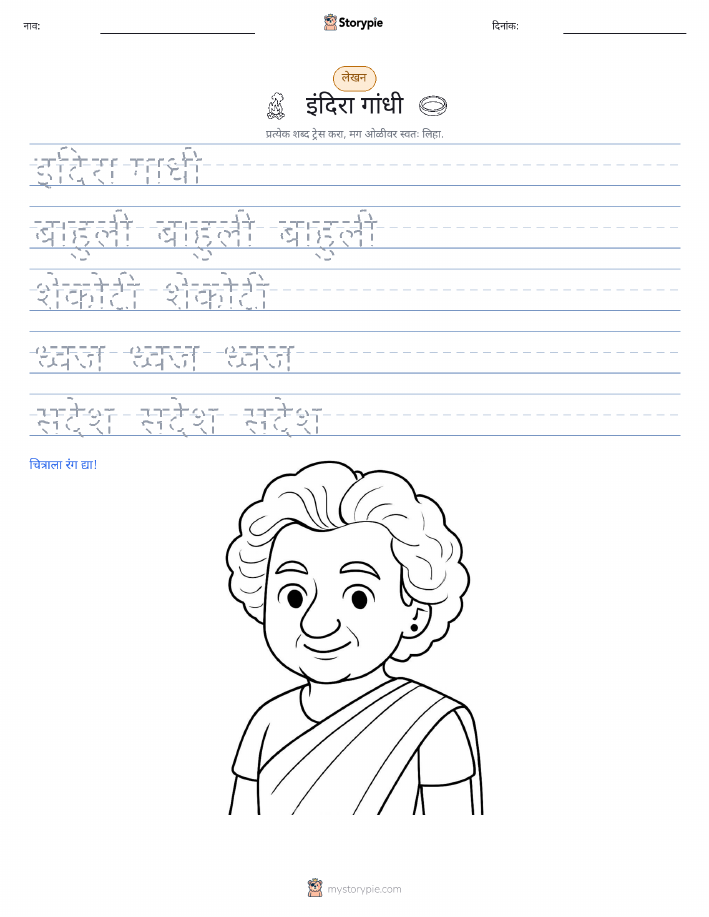 नाव:
Storypie
दिनांक:
लेखन
इंदिरा गांधी
प्रत्येक शब्द ट्रेस करा, मग ओळीवर स्वतः लिहा.
इंदिरा गांधी
बाहुली बाहुली बाहुली
शेकोटी शेकोटी
ध्वज ध्वज ध्वज
संदेश संदेश संदेश
चित्राला रंग द्या!
mystorypie.com